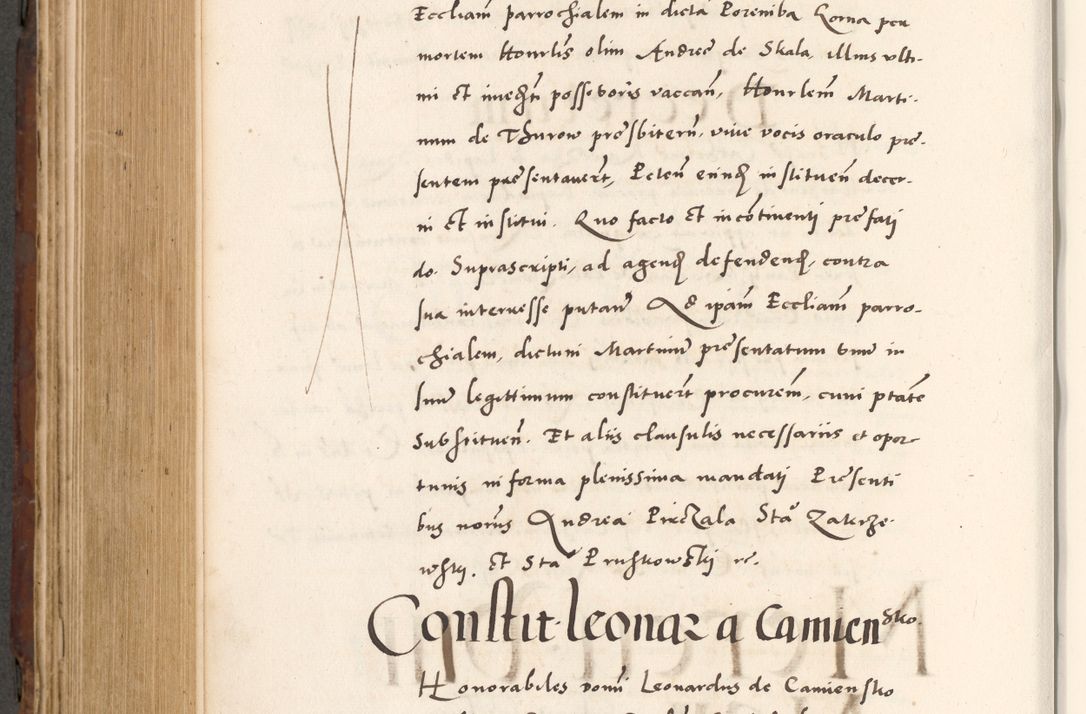 Eccliam parrochialem in dicta Poreniba Roma per
mortem Honrlis olim Andree de Skala, illius ulti-
mi et inuesti possessoris vaccan, Honrlem Marti-
num de Thurow presbitern, viue vocis oraculo pre-
sentem presentauert, Peten eundq instituen decer-
ni et institui. Quo facto et incotinenti prefati
do. Suprascripti, ad agendq defendendq, contra
sua interesse putan Ad ipam Eccliam parro-
chialem, dictum Martinum presentatum tunc in
suum legittimum constituert procurem, cum ptate
Substituen. Et aliis clausulis necessariis et opor-
tunis in forma plenissima mandati Presenti
bus nonis Andrea Sta Zakrze-
wski, et Sta Pruskowski rc.
Constit. leonar a Camiensko
Honorabiles domi Leonardus de Camiensko